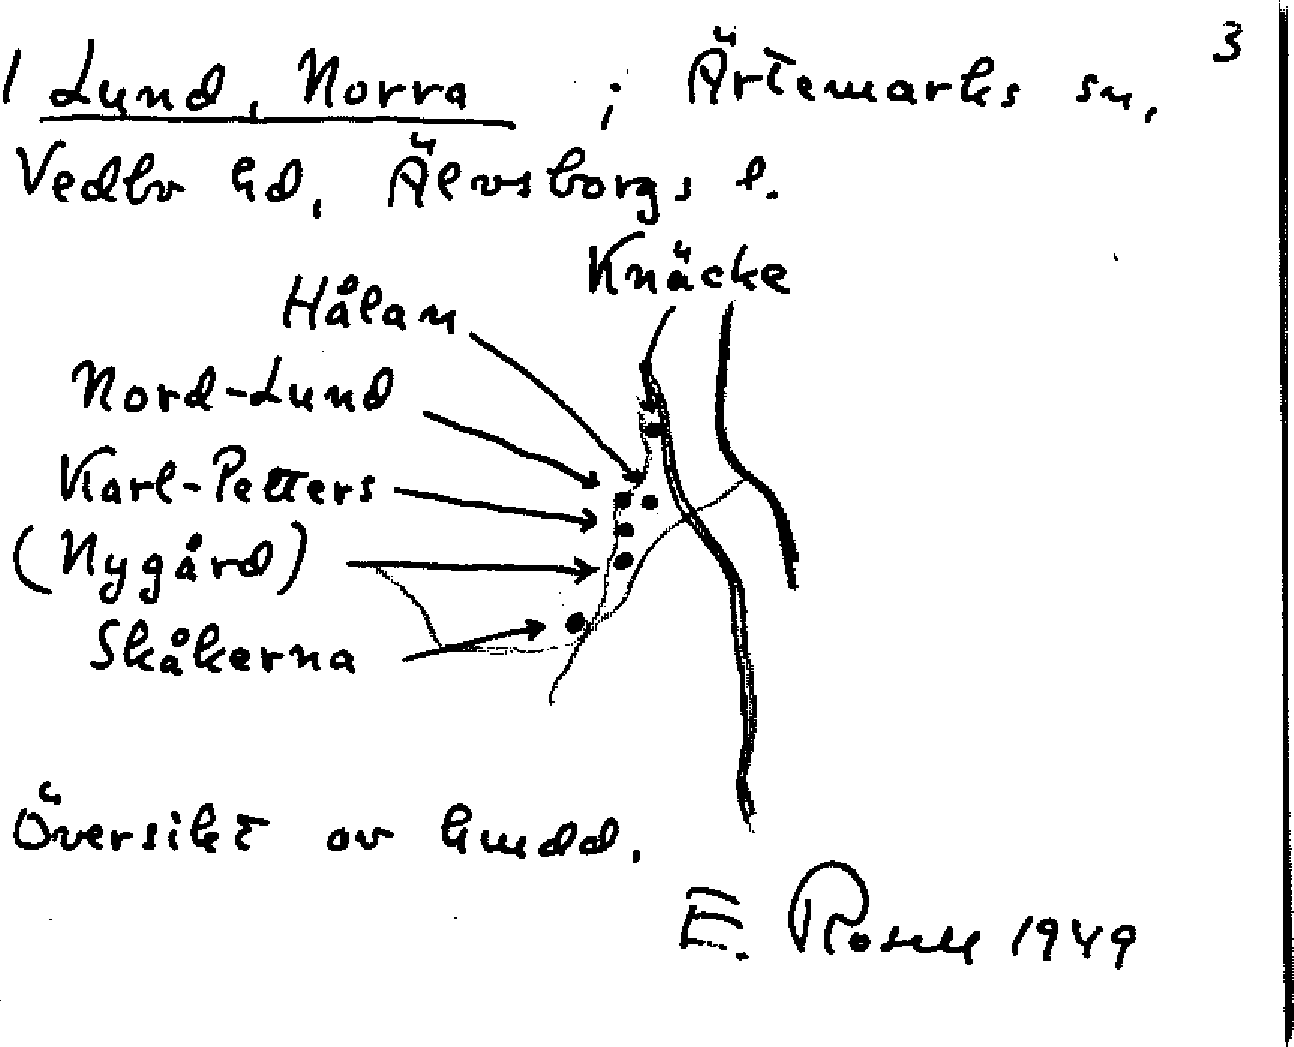 3
1 Lund, Norra ; Ärtemarks sn.
Vedbo hd, Älvsborgs l.
Knäcke
Hålan
Nord-Lund
Karl-Petters
(Nygård)
Skåkerna
Översikt av hmdd.
E. Rosell 1949